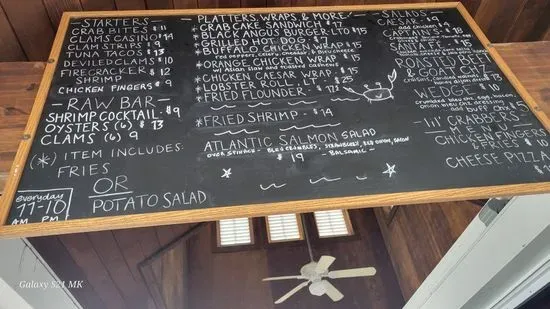 STARTERS
CRAB BITES $11
CLAMS CASINO $14
CLAM STRIPS $9
TUNA TACOS $13
DEVILED CLAMS $10
FIRECRACKER $12
SHRIMP
CHICKEN FINGERS $9
RAW BAR
SHRIMP COCKTAIL $9
OYSTERS (6) $13
CLAMS (6) 9
(*) ITEM INCLUDES:
FRIES
OR
POTATO SALAD
everyday
11-10
AM PM
PLATTERS, WRAPS & MORE
*CRAB CAKE SANDWICH $17
*BLACK ANGUS BURGER-LTO $15
*GRILLED HOT DOG $7
*BUFFALO CHICKEN WRAP $15
red peppers, celery, cheddar & bleu cheese
*ORANGE CHICKEN WRAP $15
w/ Asian slaw and toasted cashews
*CHICKEN CAESAR WRAP $15
*LOBSTER ROLL $25
*FRIED FLOUNDER
*FRIED SHRIMP - $14
ATLANTIC SALMON SALAD
OVER SPINACH - BLEU CRUMBLES, STRAWBERRY, RED ONION, BACON
$19 - BALSAMIC -
SALADS
CAESAR $9
$18
SANTA FE $15
ROASTED BEET
& GOAT CHZ
$13
WEDGE
crumbled bleu chz, bacon,
onion, bleu chz dressing
LIL' CRABBERS
MENU
CHICKEN FINGERS
& FRIES $10
CHEESE PIZZA
Galaxy S21 MK